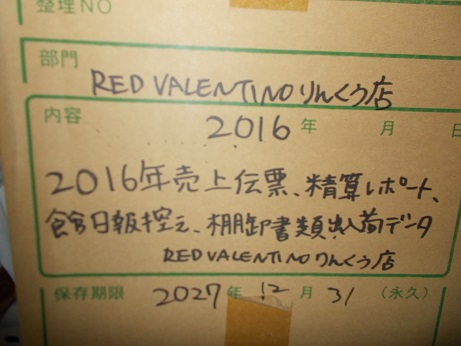 整理NO
部門
RED VALENTINOりんくう店
内容
2016年 月 日
2016年売上伝票、精算レポート、
館日報控え、棚卸書類出入荷データ
RED VALENTINOりんくう店
保存期限 2027年12月31 (永久)